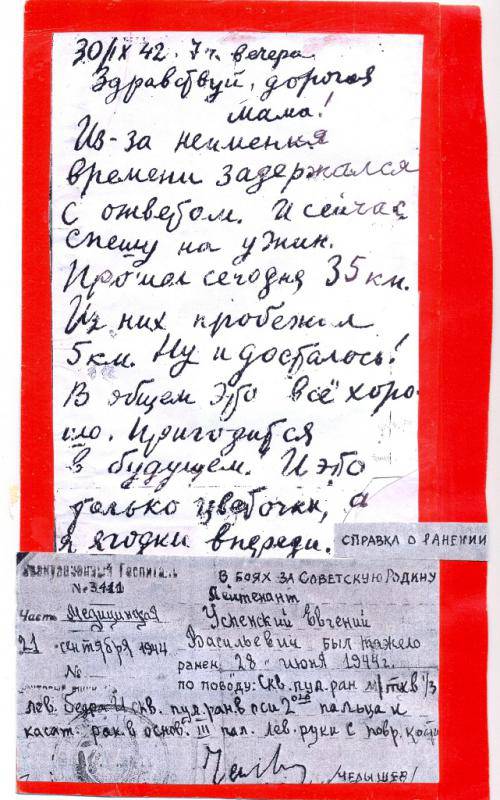 30/IX 42. 7 ч. вечера
Здравствуй, дорогая
Мама!
Из-за неимения
времени задержался
с ответом. И сейчас
спешу на ужин.
Прошел сегодня 35 км.
Из них пробежал
5 км. Ну и досталось!
В общем это всё хоро-
шо. Пригодится
в будущем. И это
только цветочки, а
я ягодки впереди.
СПРАВКА О РАНЕНИИ
Эвакуационный Госпиталь
№ 3411
Часть Медицинская
21 сентября 1944
№
В БОЯХ ЗА СОВЕТСКУЮ РОДИНУ
Лейтенант
Успенский Евгений
Васильевич был тяжело
ранен 28 июня 1944 г.
по поводу: Скв. пул. ран м/ткв 1/3
лев. бедра и скв. пул. ран в оси 2ого пальца и
касат. ран. в основ. III пал. лев. руки с повр. кости
/ЧЕЛЫШЕВ/